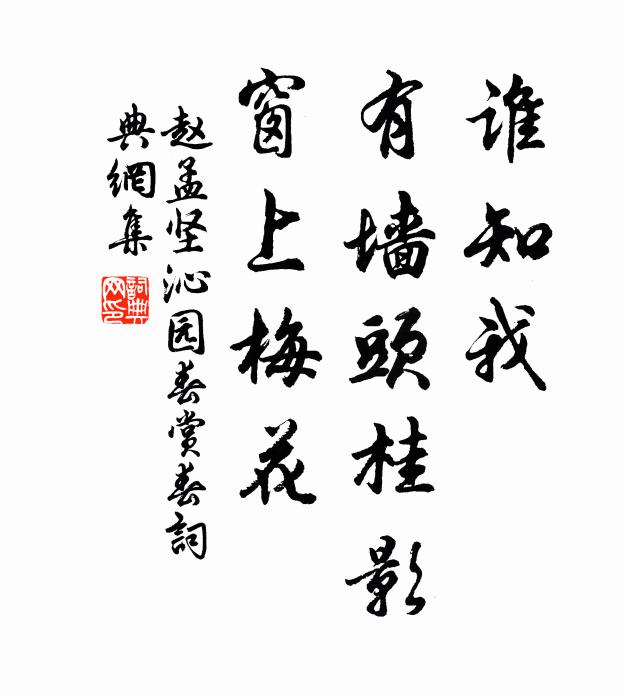 谁知我
有墙头桂影
窗上梅花
赵孟坚沁园春赏春詞
典網集
詞典
网印